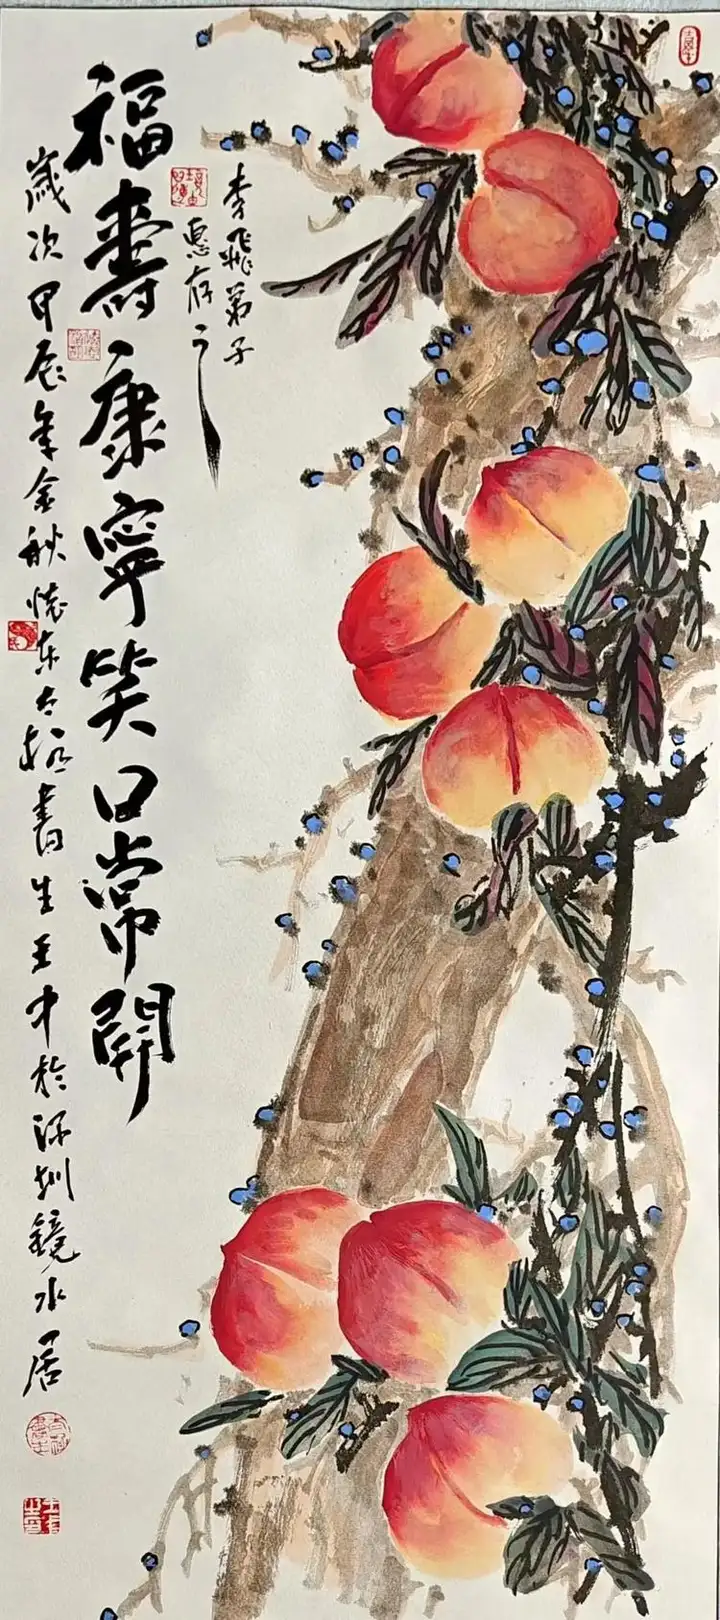 李飛弟子
惠存之
福壽康寧笑口常開
歲次甲辰年金秋懷東太極書生王才於深圳鏡水居